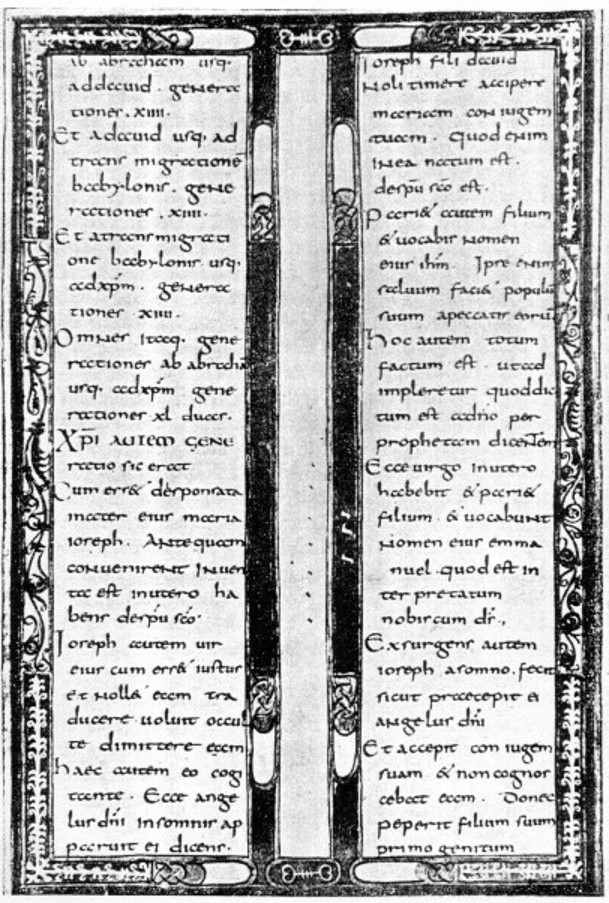 ab abraham usq·
ad dauid · genera
tiones · xiiii·
Et a dauid usq· ad
trans migrationē
babylonis · gene
rationes · xiiii·
Et a transmigrati
one babylonis usq·
ad xp̄m · genera
tiones · xiiii·
Omnes itaq· gene
rationes ab abraha
usq· ad xp̄m gene
rationes xl duae·
Xp̄i autem gene
ratio sic erat
Cum esset desponsata
mater eius maria
ioseph · Antequam
convenirent inuen
ta est inutero ha
bens despu sco·
Ioseph autem uir
eius cum esset iustus
et nollet eam tra
ducere uoluit occul
te dimittere eam
haec autem eo cogi
tante · Ecce ange
lus dn̄i insomnis ap
paruit ei dicens·
ioseph fili dauid
Noli timere accipere
mariam coniugem
tuam · Quod enim
inea natum est ·
despu sco est ·
Pariet autem filium
& uocabis nomen
eius ihm̄ · Ipse enim
saluum faciet populū
suum apeccatis eorū·
Hoc autem totum
factum est · ut ad
impleretur quod dic
tum est adn̄o per
prophetam dicentem
Ecce uirgo inutero
habebit & pariet
filium · & uocabunt
nomen eius emma
nuel · quod est in
ter pretatum
nobiscum ds̄ ·,
Exsurgens autem
ioseph asomno · fecit
sicut praecepit ei
angelus dn̄i
Et accepit coniugem
suam & non cognos
cebat eam · Donec
peperit filium suum
primo genitum